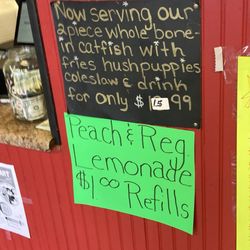 Now serving our
2piece whole bone-
in catfish with
fries hushpuppies
coleslaw & drink
for only $15.99
Peach & Reg
Lemonade
$1.00 Refills